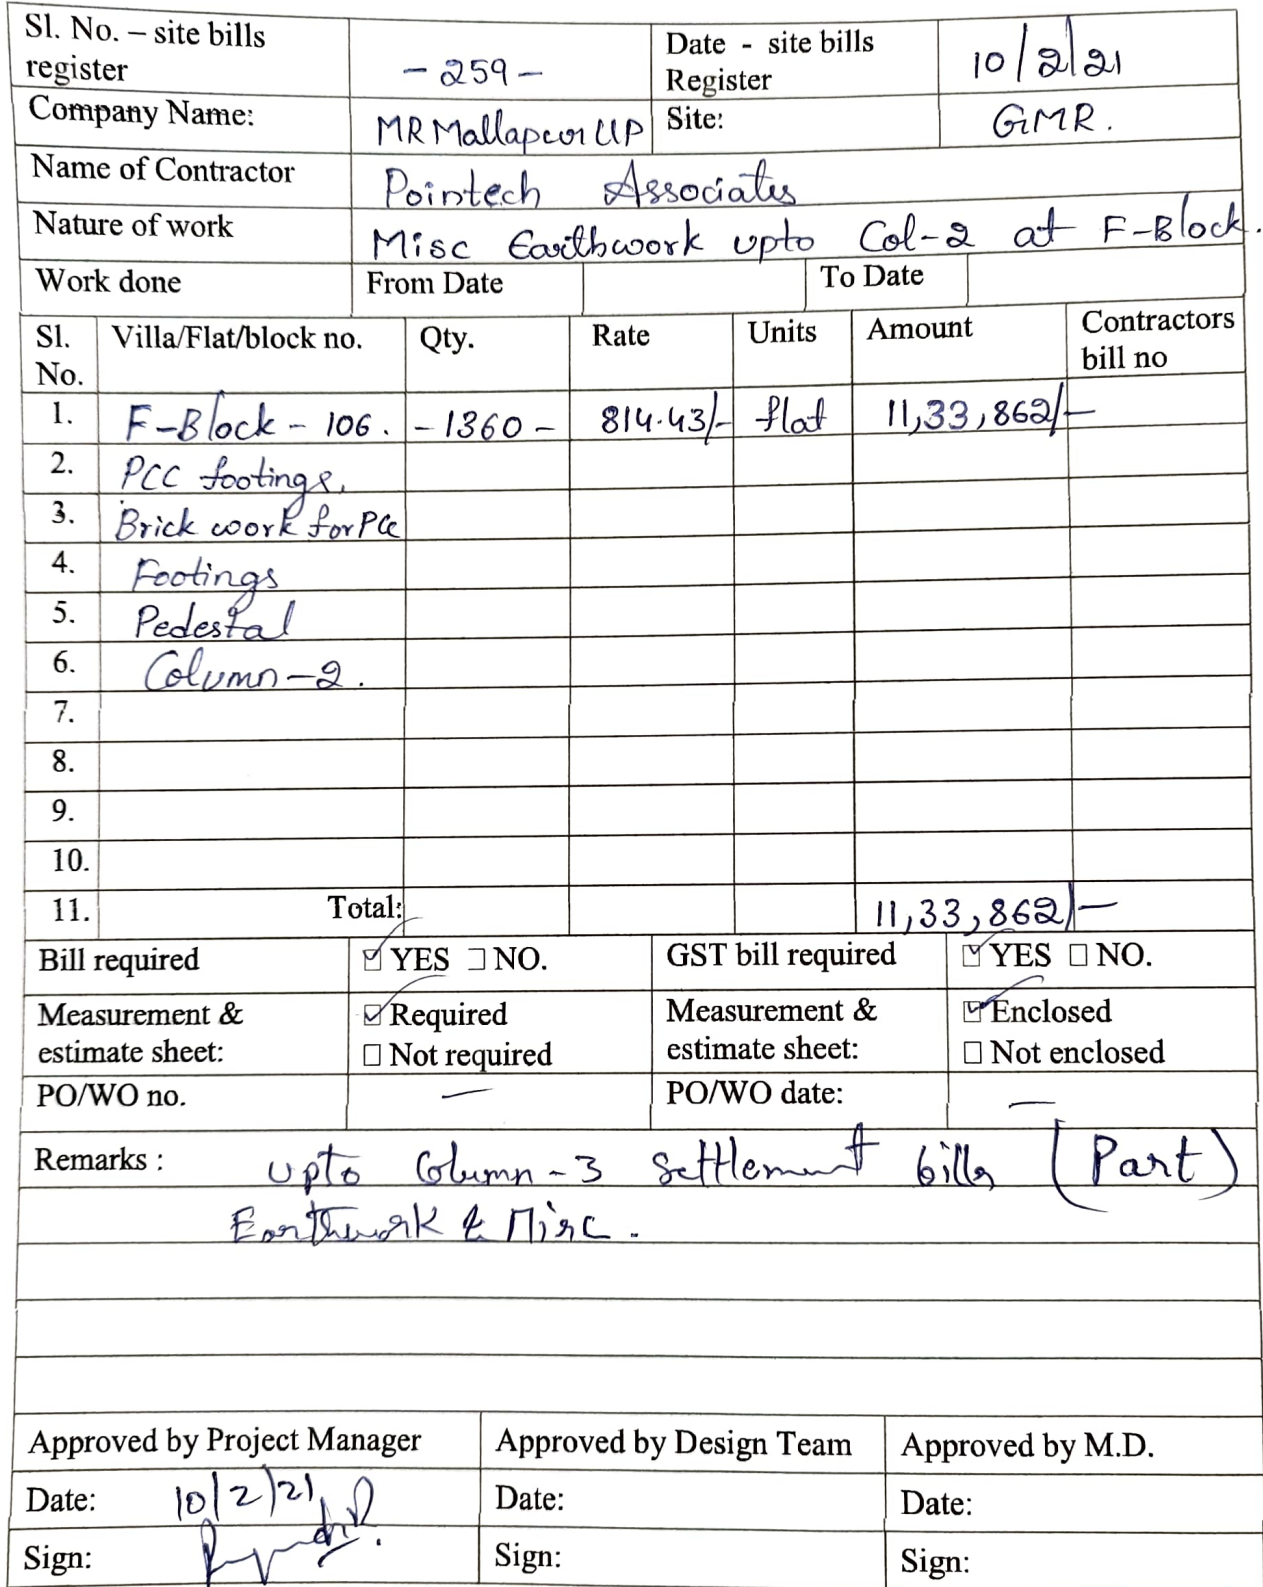 Sl. No. – site bills register - 259 - Date - site bills Register 10/2/21
Company Name: MR Mallapur LLP Site: GMR.
Name of Contractor Pointech Associates
Nature of work Misc Earthwork upto Col-2 at F-Block.
Work done From Date To Date
Sl. No. Villa/Flat/block no. Qty. Rate Units Amount Contractors bill no
1. F-Block - 106. - 1360 - 814.43/- flat 11,33,862/-
2. PCC footings,
3. Brick work for PCC
4. Footings
5. Pedestal
6. Column-2.
7.
8.
9.
10.
11. Total: 11,33,862/-
Bill required ☑ YES ☐ NO. GST bill required ☑ YES ☐ NO.
Measurement & estimate sheet: ☑ Required ☐ Not required Measurement & estimate sheet: ☑ Enclosed ☐ Not enclosed
PO/WO no. — PO/WO date: —
Remarks : upto Column-3 Settlement bills (Part)
Earthwork & Misc.
Approved by Project Manager Approved by Design Team Approved by M.D.
Date: 10/2/21 Date: Date:
Sign: Sign: Sign: